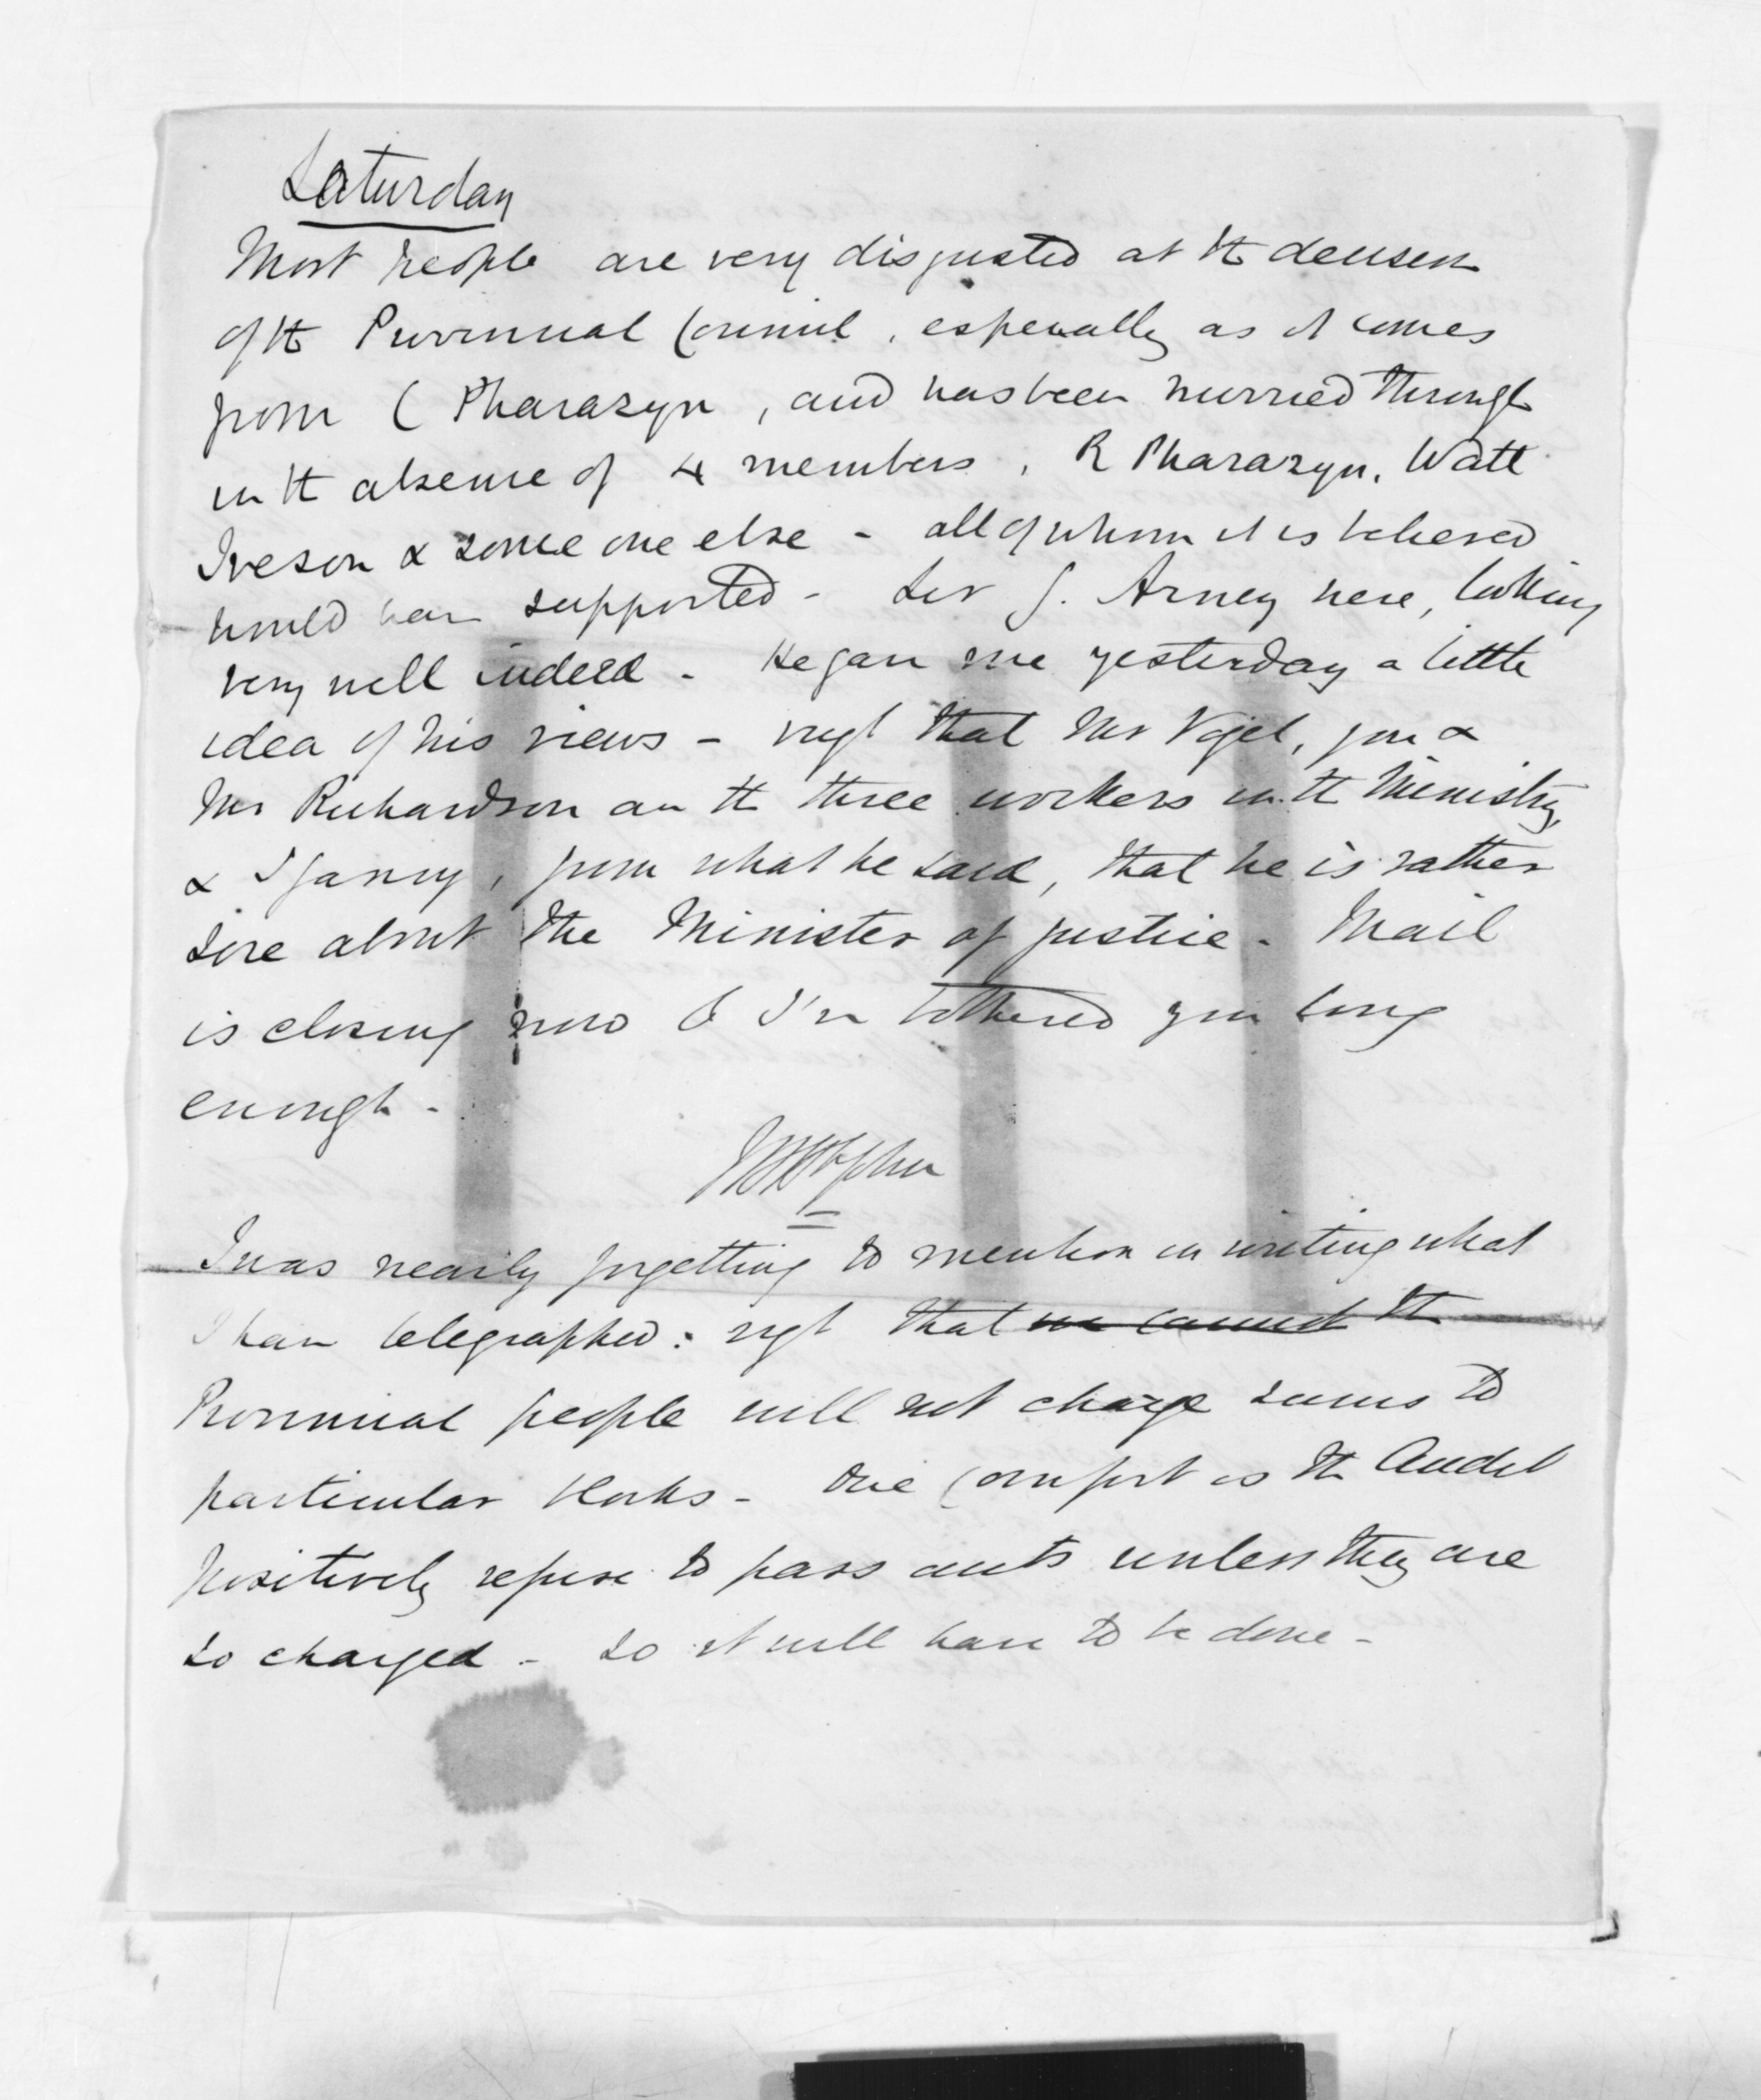 Saturday
Most people are very disgusted at the decision
of the Provincial Council, especially as it comes
from C Pharazyn, and has been hurried through
in the absence of 4 members, R Pharazyn, Watt
Iveson & some one else - all of whom it is believed
would have supported - Sir G. Arney here, looking
very well indeed - He gave me yesterday a little
idea of his views - vizt that Mr Vogel, you &
Mr Richardson are the three workers in the Ministry,
& I fancy, from what he said, that he is rather
sore about the Minister of Justice - Mail
is closing now & I've bothered you long
enough -
I was nearly forgetting to mention in writing what
I have telegraphed: vizt that we cannot the
Provincial people will not charge sums to
particular blocks - One comfort is the Audit
positively refuse to pass accts unless they are
so charged - so it will have to be done -